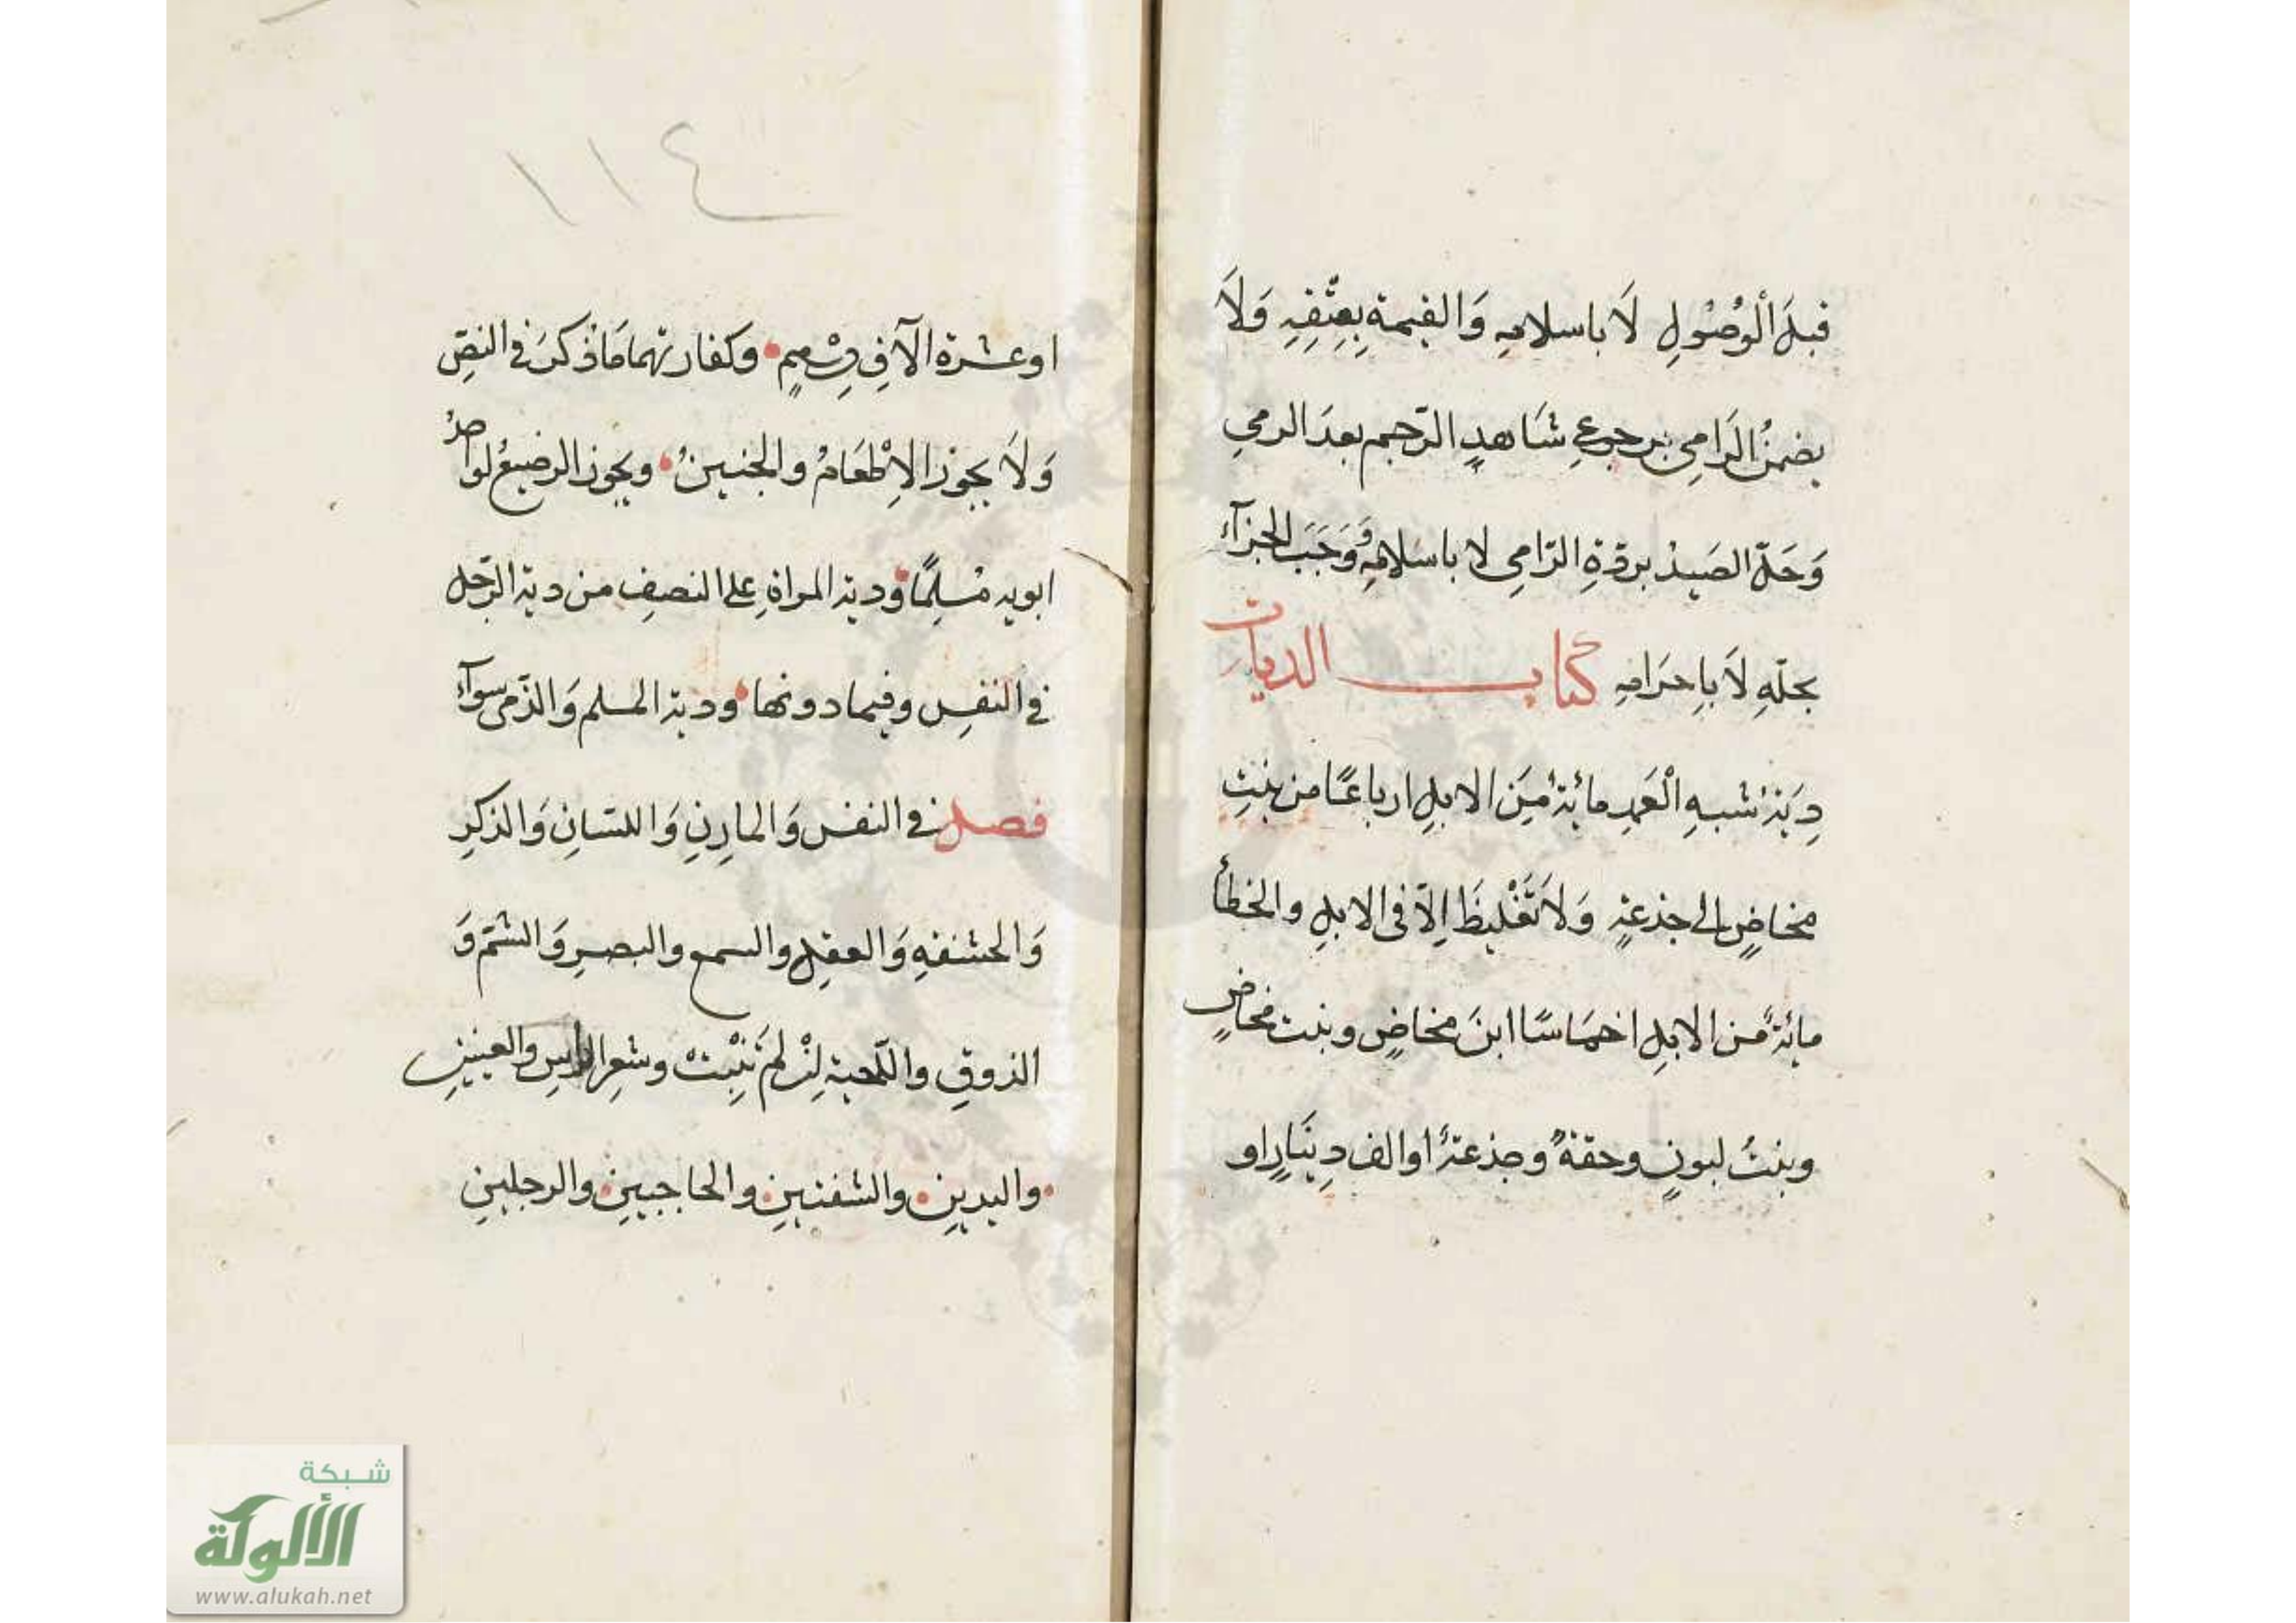 قبلَ الْوُصُولِ لَا باسلامِهِ وَالقيمة بِعِتْقِهِ وَلَا
يضمنُ الرَامِى برجوعِ شَاهدِ الرّجم بعدَ الرمي
وَحَلّ الصَيدُ بردّةِ الرّامِى لا باسلامِهِ وَوَجَبَ الجزآء
بحلّهِ لَا باِحرَامِهِ كتاب الديات
دِيَة شبهِ الْعَمدِ مائة مِنَ الابلِ ارباعًا من بنتِ
مخاضٍ الى جذعةٍ وَلَا تَغْليظَ اِلّا فى الابلِ والخطأ
مائةٌ من الابلِ اخمَاسًا ابنَ مخاضٍ وبنت مخاضٍ
وبنتُ لبونٍ وحقةٌ وجذعةٌ اوالف دِينَارٍ او
١١٤
اوعشرة الآفِ دِرْهمٍ وكفارتهما مَا ذكرَ فى النصّ
وَلَا يجوز الاِطْعَامُ والجنينُ ويجوز الرضيعُ لو احدُ
ابويه مُسلِمًا ودية المراةِ على النصفِ من دية الرّجل
فى النفسِ وفيما دونها ودية المسلم وَالذّمى سوآء
فصل فى النفس وَالمارِنِ وَاللسَانِ وَالذكرِ
وَالحشفةِ وَالعقلِ والسمع والبصرِ وَالشمّ وَ
الذوقِ واللّحية اِنْ لم تَنْبِتْ وشعرِ الراسِ والعينينِ
واليدينِ والشفتينِ والحاجبينِ والرجلينِ
شبكة
الألوكة
www.alukah.net